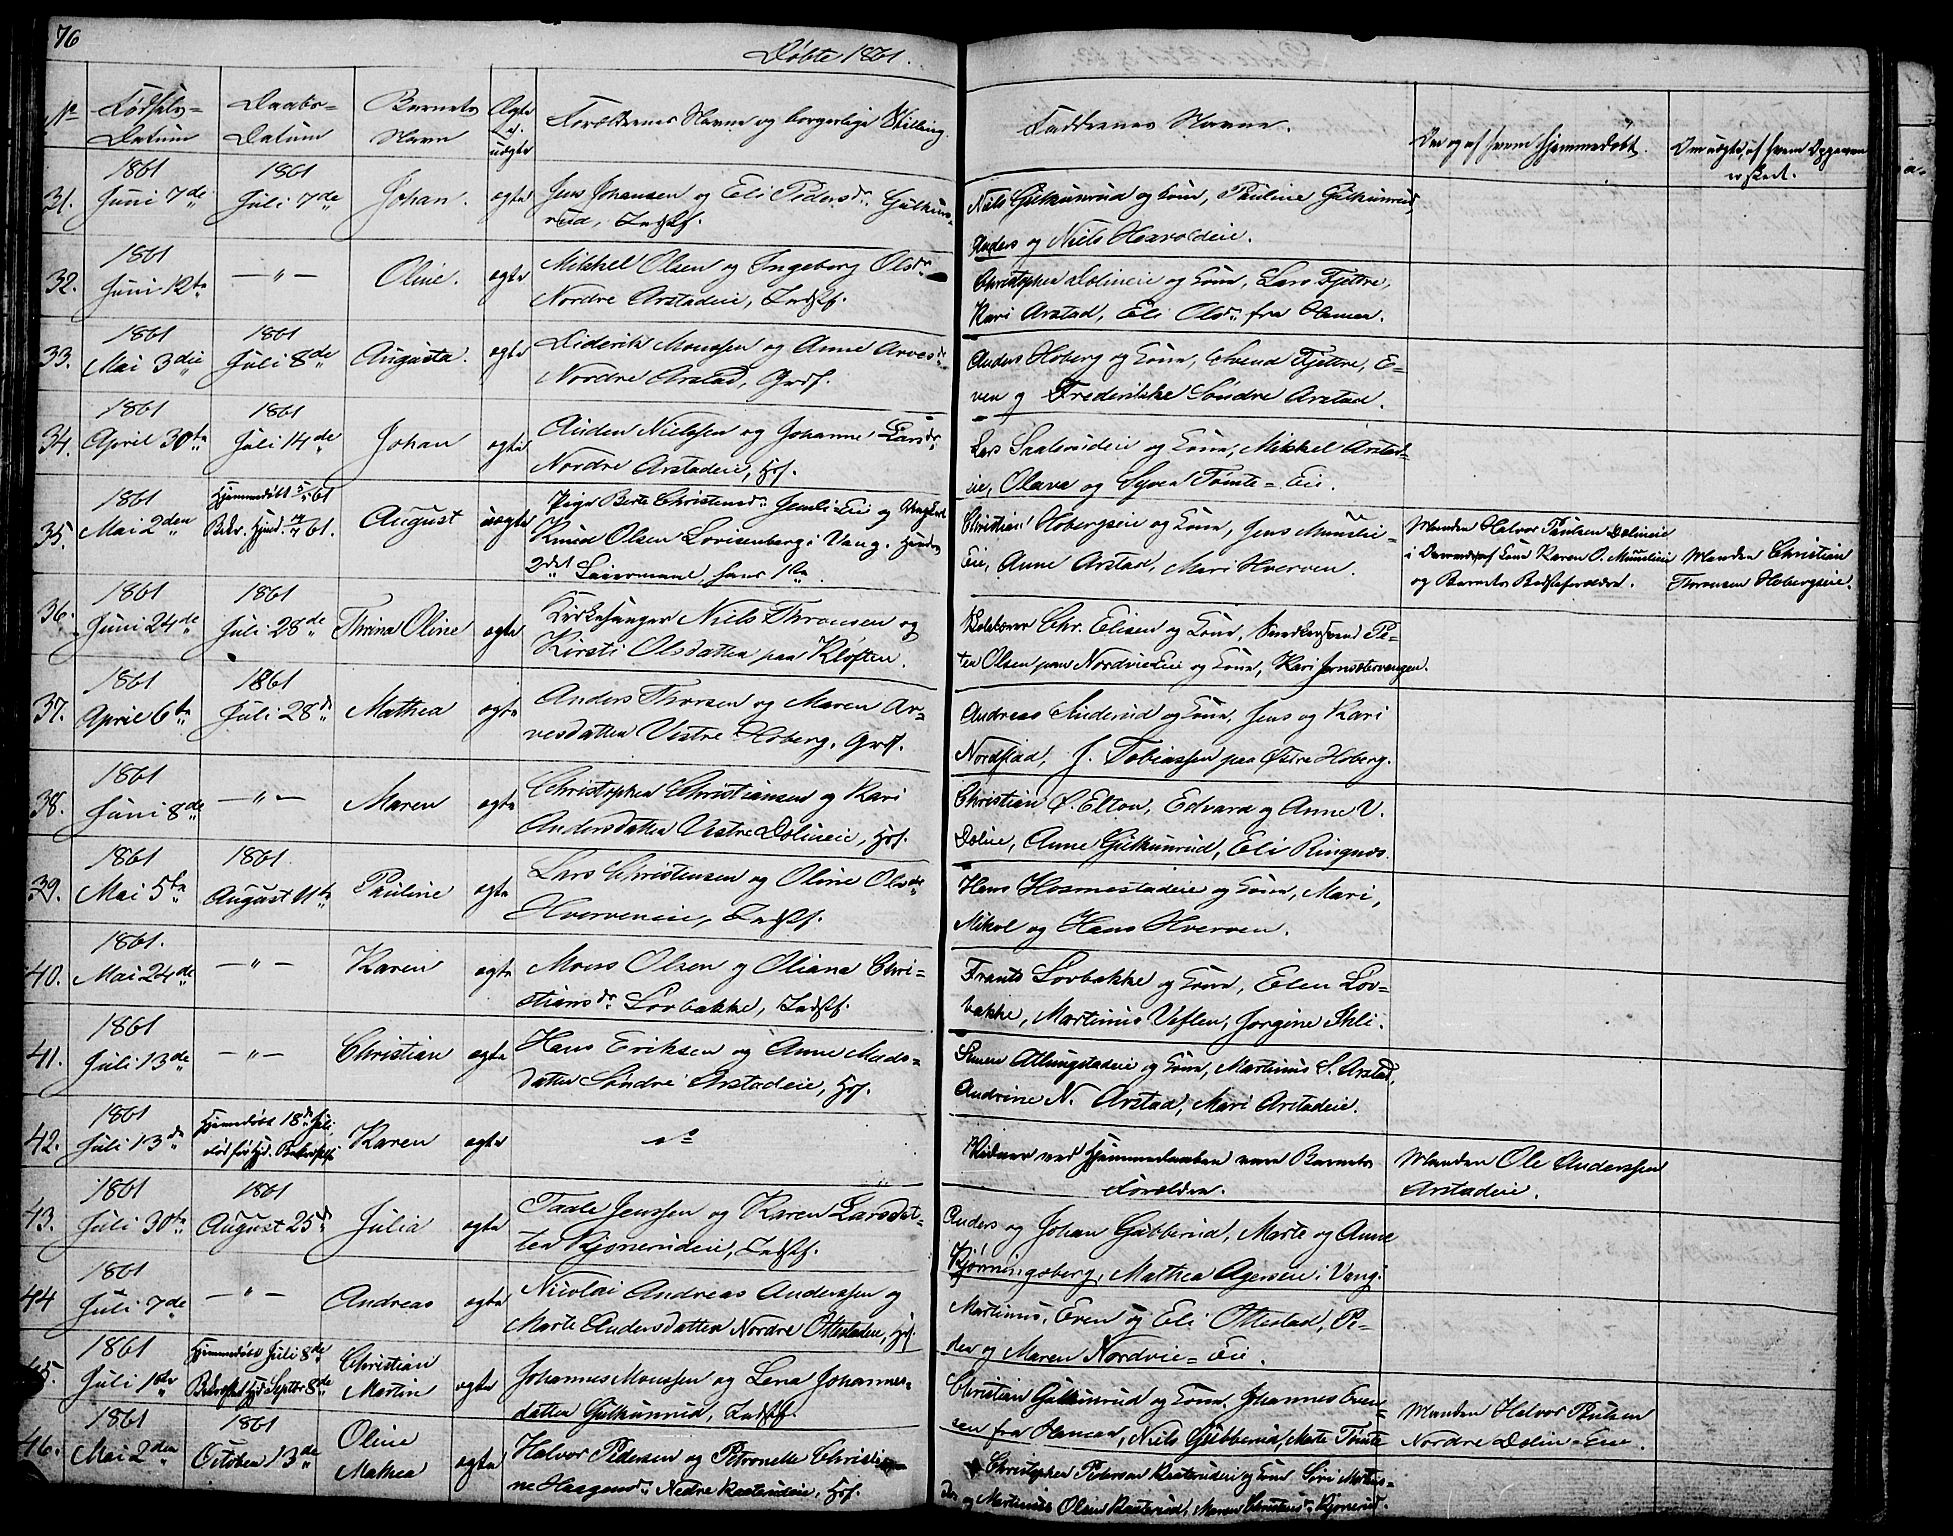 76
Døbte 1861.
No
Fødsels-
Datum
Daabs-
Datum
Barnets
Navn
Ægte
el.
uægte
Forældrenes Navne og borgerlige Stilling.
Faddernes Navne.
Om og af hvem hjemmedøbt.
Om uægte, af hvem Opgaven
er skeet.
31. 1861 Juni 7de 1861 Juli 7de Johan. ægte
Jens Johansen og Eli Pedersdr. Gulkuns-
rud, Indst.
Niels Gulkunrud og Kone, Pauline Gulkunrud,
Anders og Niels Hexroldeie.
32. 1861 Juni 12te —"— Oline. ægte
Mikkel Olsen og Ingeborg Olsdr.
Nordre Arstadeie, Indst.
Christopher Dolineie og Kone, Lars Fjettre,
Kari Arstad, Eli Olsdr. fra Hamar.
33. 1861 Mai 3die 1861 Juli 8de Augusta. ægte
Diderik Monssen og Anne Arvesdr.
Nordre Arstad, Grdf.
Anders Hoberg og Kone, Svend Fjettre, E-
ven og Frederikke Søndre Arstad.
34. 1861 April 30te 1861 Juli 14de Johan ægte
Auden Nielssen og Johanne Larsdr.
Nordre Arstadeie, Hf.
Lars Saaterudeie og Kone, Mikkel Arstad-
eie, Olava og Syver Tomte-Eie.
35. 1861 Mai 2den Hjemmedøbt 5/5 61. Bekr. Hjmd. 14/7 61. August uægte
Pige Berte Christensdr. Jemli-Eie og Ungkarl
Knud Olsen Lovisenberg i Vang. Hendes
2det Leiermaal, hans 1ste.
Christian Hobergseie og Kone, Jens Munslie-
Eie, Anne Arstad, Mari Hverven.
Manden Halvor Paulsen Dolineie
i Overvær af Kone Karen O. Munslieie
og Barnets Bedsteforældre.
Manden Christian
Thronsen Hobergseie.
36. 1861 Juni 24de 1861 Juli 28de Thrina Oline ægte
Kirkesanger Niels Thronsen og
Kirsti Olsdatter paa Kløften.
Skolelærer Chr. Elisen og Kone, Snedkersvend Pe-
ter Olsen paa Nordvie-Eie og Kone, Kari Jernsætervangen.
37. 1861 April 6te 1861 Juli 28de Mathea ægte
Anders Thorsen og Maren Ar-
vesdatter Vestre Hoberg, Grdf.
Andreas Sinderud og Kone, Jens og Kari
Nordstad, J. Tobiassen paa Østre Hoberg.
38. 1861 Juni 8de —"— Maren ægte
Christopher Christiansen og Kari
Andersdatter Vestre Dolineie, Hf.
Christian Ø. Elton, Edvard og Anne V.
Dolin, Anne Gulkunrud, Eli Ringnæs.
39. 1861 Mai 5te 1861. August 11te Pauline ægte
Lars Christensen og Oline Olsdr.
Hverveneie, Indst.
Hans Hosmestadeie og Kone, Mari,
Mikel og Hans Hverven.
40. 1861. Mai 24de —"— Karen ægte
Moses Olsen og Oliana Chri-
stiansdr. Lovbakke, Indst.
Frants Lovbakke og Kone, Elen Lov-
bakke, Martinus Veflen, Jørgine Ihli.
41. 1861 Juli 13de —"— Christian ægte
Hans Eriksen og Anne Mads-
datter Søndre Arstadeie, Hf.
Simen Atlungstadeie og Kone, Martinus S. Arstad,
Andrine N. Arstad, Mari Arstadeie.
42. 1861 Juli 13de Hjemmedøbt 18de Juli død før Hjd. Bekræftelse Karen ægte
Vidner ved Hjemmedaaben vare Barnets
Forældre.
Manden Ole Anderssen
Arstadeie.
43. 1861 Juli 30te 1861 August 25de Julia ægte
Taale Jenssen og Karen Larsdat-
ter Kjonerudeie, Indst.
Anders og Johan Gubberud, Marte og Anne
Kjønningsberg, Mathea Agerseie i Vang.
44 1861 Juli 7de —"— Andreas ægte
Nicolai Andreas Anderssen og
Marte Andersdatter Nordre Ottestadeie, Hf.
Martinus, Even og Eli Ottestad, Pe-
der og Maren Nordvie-Eie.
45. 1861 Juli 1ste Hjemmedøbt Juli 8de Bekræftet Hjd. Septbr 8de Christian Martin ægte
Johannes Monssen og Lena Johannes-
datter Gulkunrud, Indst.
Christian Gulkunrud og Kone, Johannes Even-
sen fra Hamar, Niels Gubberud, Marte Tomte
Manden Halvor Paulsen
Nordre Dolin-Eie.
46. 1861 Mai 2den 1861 October 13de Oline Mathea ægte
Halvor Pedersen og Petronelle Christi-
ne Haagensdr. Nedre Raaterudeie, Hf.
Christopher Pedersen Raaterudeie og Kone Siri Mortens-
dr. og Martinius Olsen Raaterud, Maren Christensdr. Kjonerud.